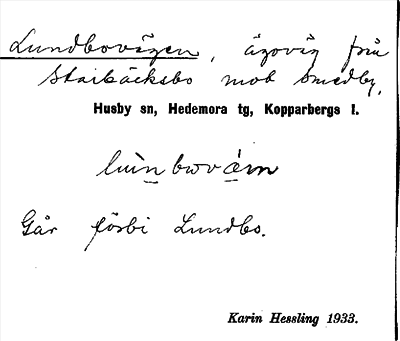 Lundbovägen, ägoväg från
Starbäcksbo mot Smedby,
Husby sn, Hedemora tg, Kopparbergs l.
Går förbi Lundbo.
Karin Hessling 1933.